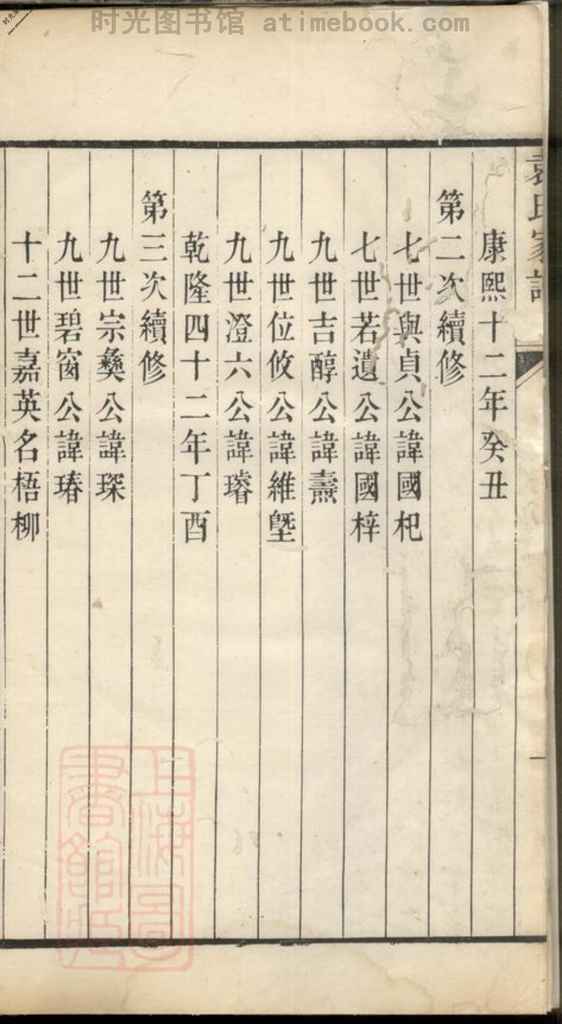 时光图书馆 atimebook.com
袁氏家譜
康熙十二年癸丑
第二次續修
七世與貞公諱國杞
七世若遺公諱國梓
九世吉醇公諱燾
九世位攸公諱維墍
九世澄六公諱璿
乾隆四十二年丁酉
第三次續修
九世宗彝公諱琛
九世碧窗公諱瑃
十二世嘉英名梧柳
上海圖書館藏